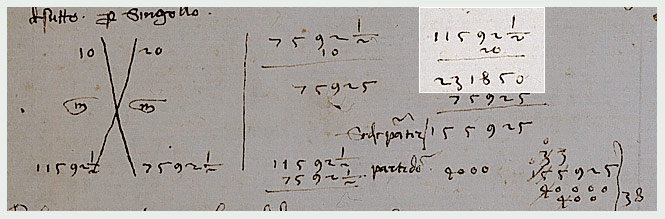 Singollo .
10 20
m m
11592 1/2 7592 1/2
7592 1/2
10
75925
11592 1/2
20
231850
75925
155925
11592 1/2
7592 1/2
4000
0
33
155925
40000
400
38